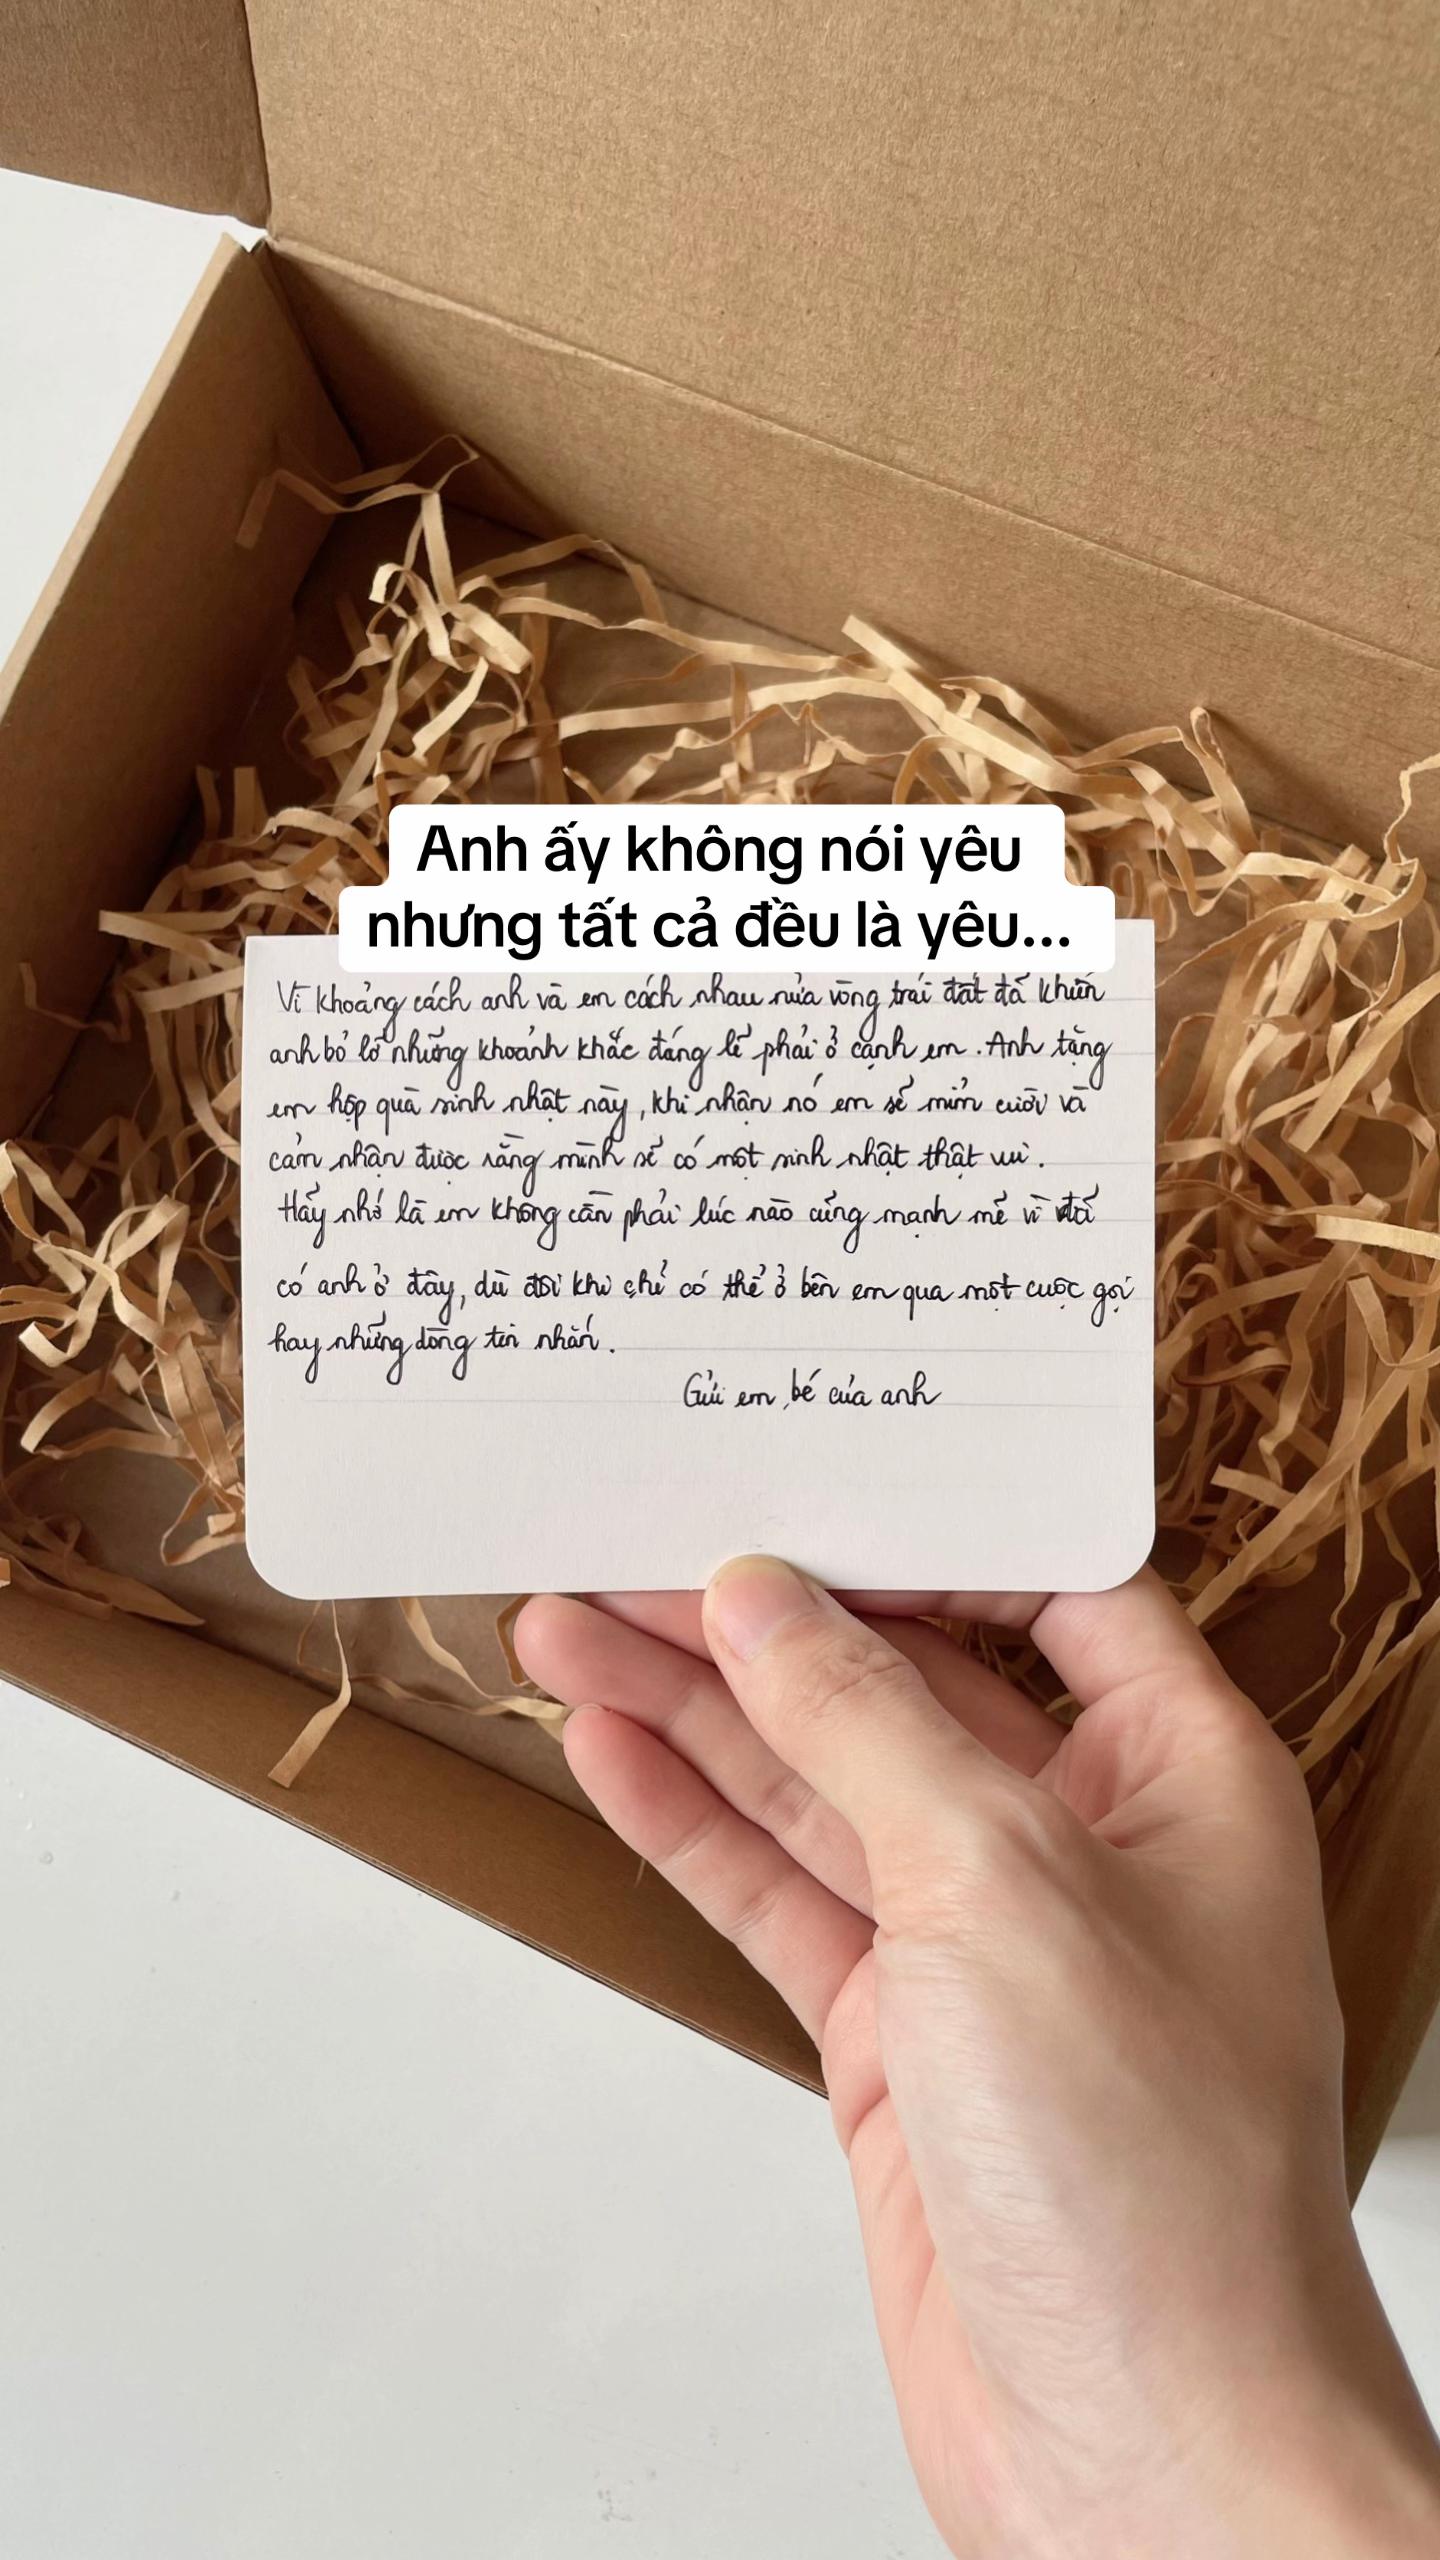 Anh ấy không nói yêu
nhưng tất cả đều là yêu...
Vì khoảng cách anh và em cách nhau nửa vòng trái đất đã khiến
anh bỏ lỡ những khoảnh khắc đáng lẽ phải ở cạnh em. Anh tặng
em hộp quà sinh nhật này, khi nhận nó em sẽ mỉm cười và
cảm nhận được rằng mình sẽ có một sinh nhật thật vui.
Hãy nhớ là em không cần phải lúc nào cũng mạnh mẽ vì đã
có anh ở đây, dù đôi khi chỉ có thể ở bên em qua một cuộc gọi
hay những dòng tin nhắn.
Gửi em bé của anh